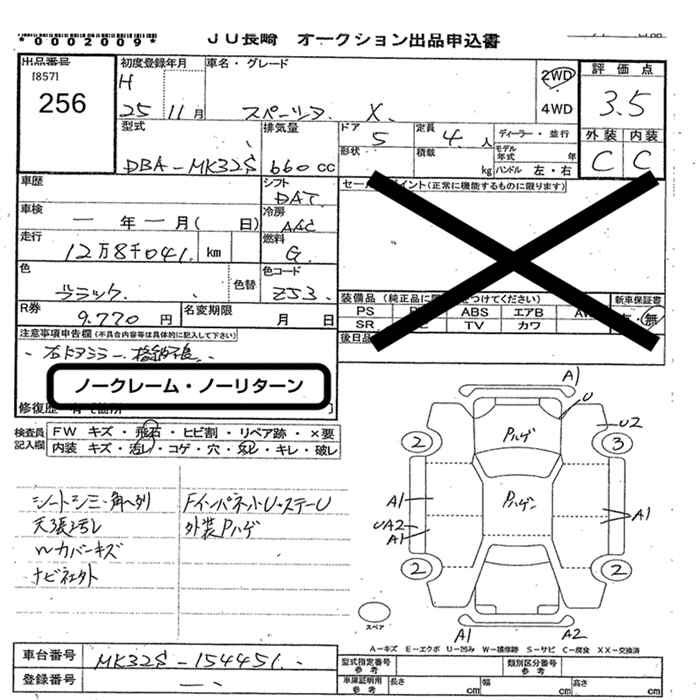 *0002009*
JU長崎 オークション出品申込書
出品番号
[857]
256
初度登録年月
H
25 11月
車名・グレード
スペーシア X
2WD
4WD
評価点
3.5
外装 内装
C C
型式
DBA-MK32S
排気量
660 cc
ドア 5
形状
定員 4人
積載 kg
ディーラー・並行
モデル年式 年
ハンドル 左・右
車歴
車検
― 年 ― 月( 日)
走行
12万8千041 km
シフト
DAT
冷房
AAC
燃料
G
色
ブラック
色替
色コード
ZJ3
R券
9,770 円
名変期限
月 日
セールスポイント(正常に機能するものに限ります)
装備品(純正品に をつけてください)
新車保証書
PS ABS エアB AW 有・無
SR TV カワ
後日品
注意事項申告欄(不具合内容等は具体的に記入して下さい)
右ドアミラー、格納不良
ノークレーム・ノーリターン
修復歴
検査員記入欄
FW キズ・飛石・ヒビ割・リペア跡・×要
内装 キズ・汚レ・コゲ・穴・欠シ・キレ・破レ
シートシミ・角ヘリ
天張ヨゴレ
Wカバーキズ
ナビ社外
FインパネホU・ステーU
外装Pハゲ
A1
U
U2
2
3
Pハゲ
Pハゲ
A1
UA2
A1
A1
2
2
スペア
A1
A2
A−キズ E−エクボ U−凹み W−補修跡 S−サビ C−腐食 XX−交換済
車台番号
MK32S-154451
登録番号
―
型式指定番号
参考
類別区分番号
参考
車庫証明用
参考
長さ cm 幅 cm 高さ cm